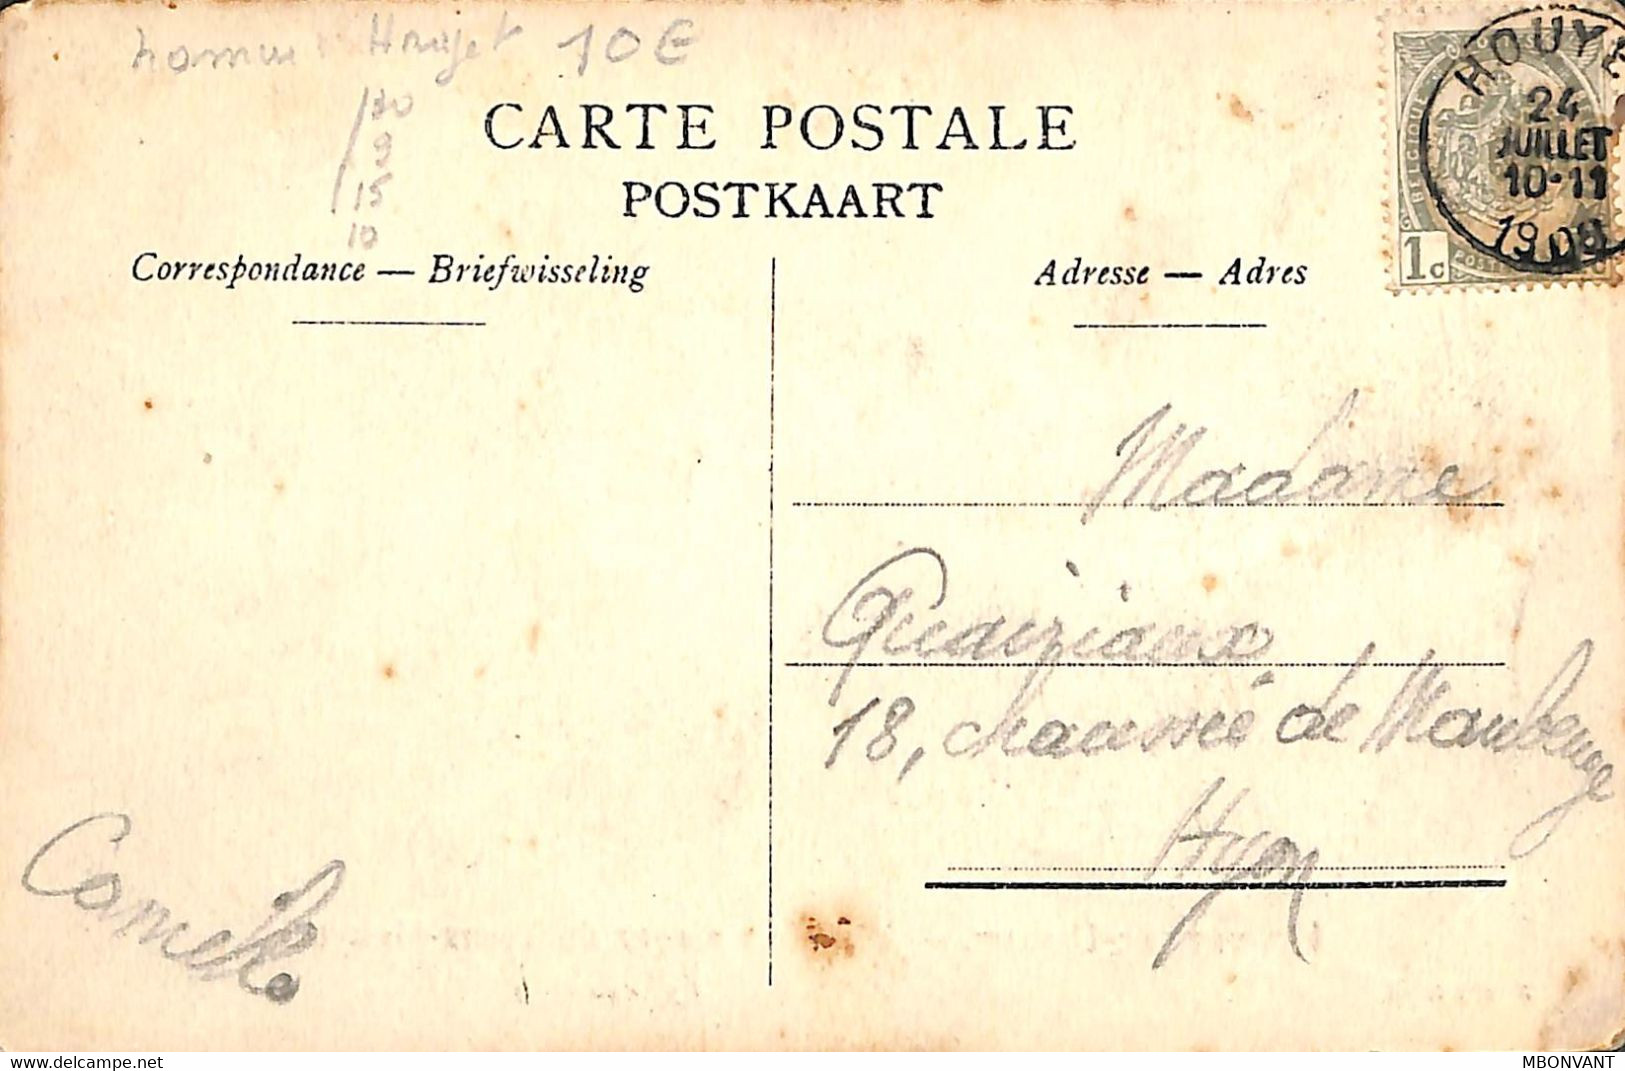 10 €
10
9
15
10
CARTE POSTALE
POSTKAART
Correspondance — Briefwisseling
Adresse — Adres
HOUYE
24
JUILLET
10-11
BELGIQUE
1c
Madame
Quaiziaux
18, chaussée de Maubeuge
Hyon
delcampe.net
MBONVANT